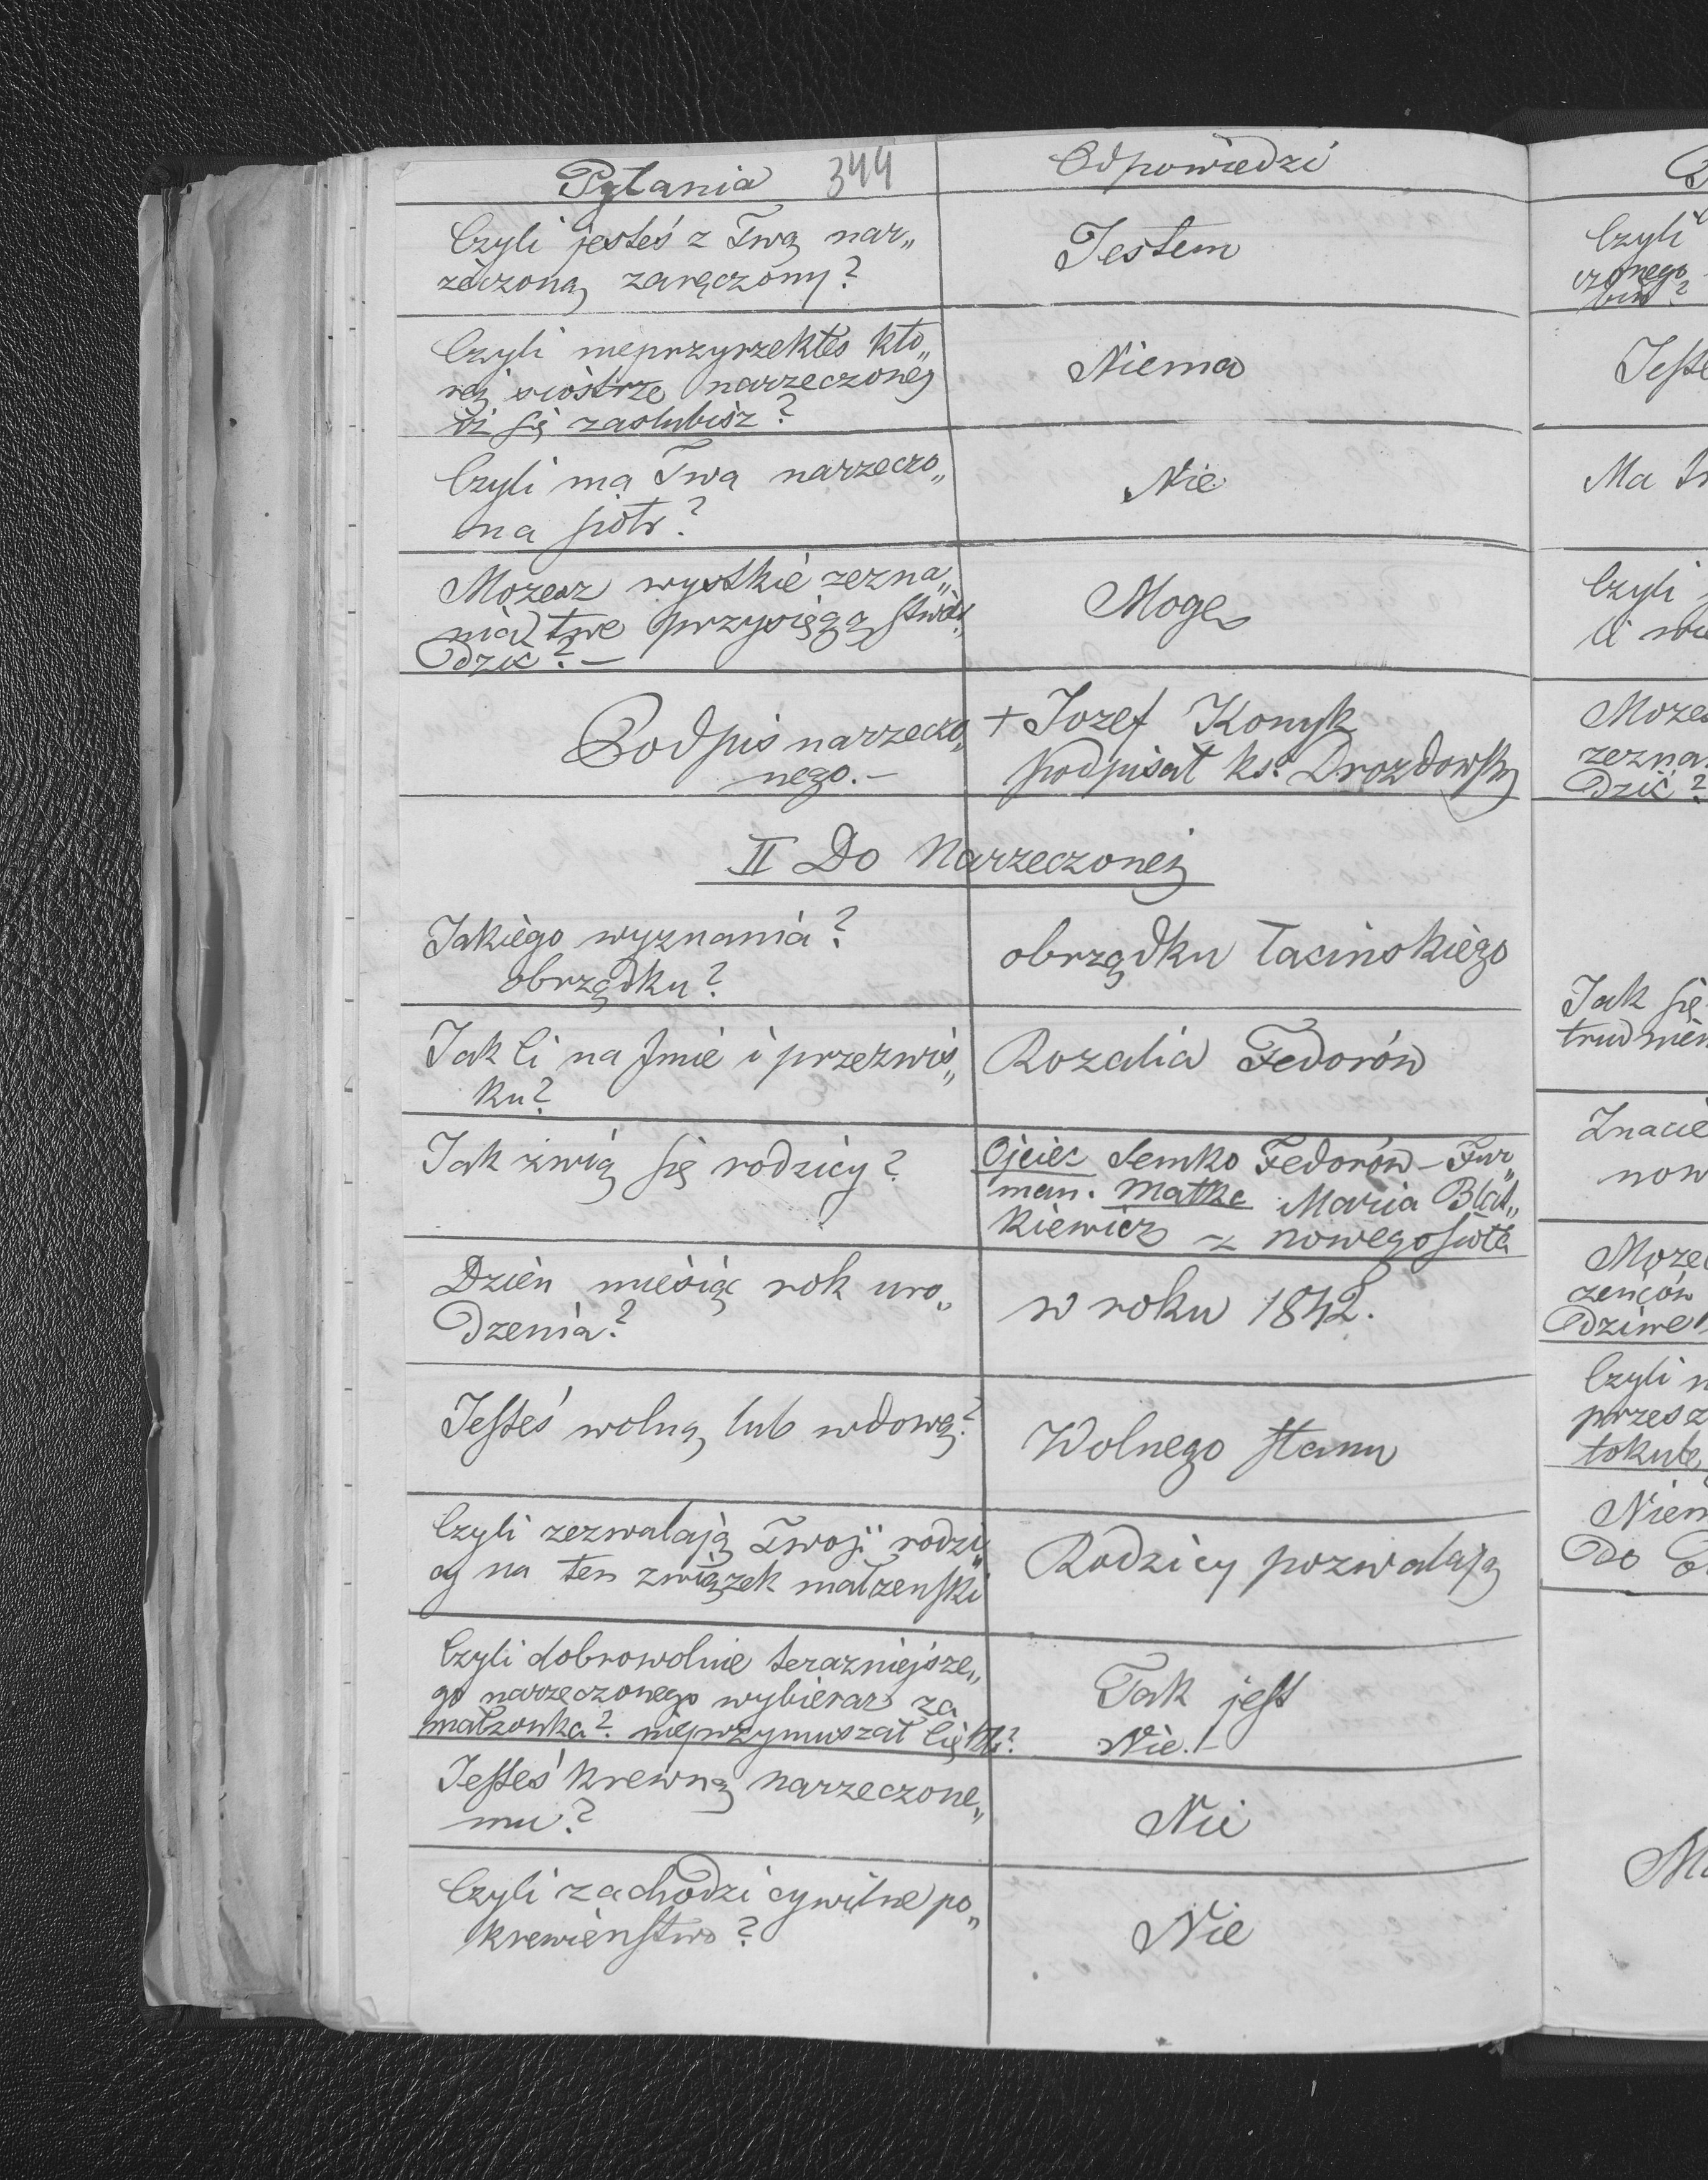 Pytania 344 Odpowiedzi
Czyli jesteś z Twą nar„
zeczoną zaręczony?
Jestem
Czyli nieprzyrzekłeś któ„
rej siostrze narzeczonej
iż się zaślubisz?
Niema
Czyli ma Twa narzeczo„
na siótr?
Nie
Możesz wystkie zezna„
nia twe przysięgą stwier„
dzić? —
Mogę
Podpis narzeczo„
nego. —
+ Jozef Konyk
podpisał ks. Drozdowski
II Do Narzeczonej
Jakiego wyznania?
obrządku?
obrządku łacinskiego
Jak Ci na Jmie i przezwis„
ku?
Rozalia Fedorów
Jak zwią się rodzicy?
Ojciec Semko Fedorów – Fur„
man. Matka Maria
z nowegosioła
Dzień miesiąc rok uro„
dzenia?
w roku 1842.
Jesteś wolną lub wdową?
Wolnego stanu
Czyli zezwalają Twoji rodzi„
cy na ten związek małżenski
Rodzicy pozwalają
Czyli dobrowolnie terazniejsze„
go narzeczonego wybierasz za
małżonka? nieprzymuszał Cię kto?
Tak jest
Nie. –
Jesteś krewną narzeczone„
mu?
Nie
Czyli zachodzi cywilne po„
krewieństwo?
Nie
Czyli
czonego
Jeste
Ma
Czyli
Może
zezna
dzić?
Jak się
trudnien
Znacie
now
Może
żeńców
Czyli n
przesz
Niem
Do